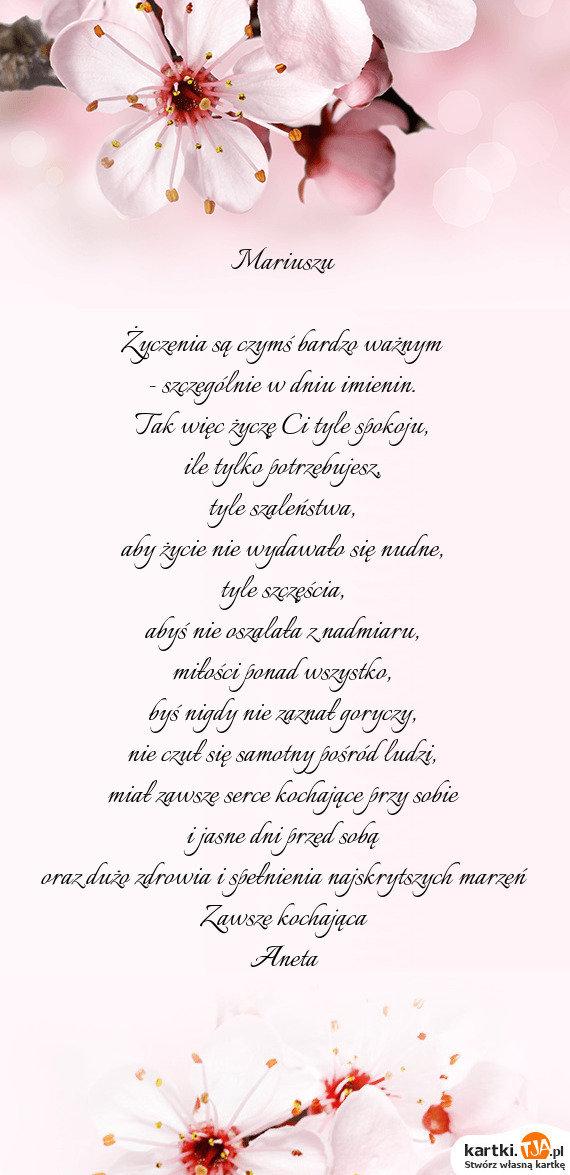 Mariuszu
Życzenia są czymś bardzo ważnym
- szczególnie w dniu imienin.
Tak więc życzę Ci tyle spokoju,
ile tylko potrzebujesz,
tyle szaleństwa,
aby życie nie wydawało się nudne,
tyle szczęścia,
abyś nie oszalała z nadmiaru,
miłości ponad wszystko,
byś nigdy nie zaznał goryczy,
nie czuł się samotny pośród ludzi,
miał zawsze serce kochające przy sobie
i jasne dni przed sobą
oraz dużo zdrowia i spełnienia najskrytszych marzeń
Zawsze kochająca
Aneta
kartki.TJA.pl
Stwórz własną kartkę